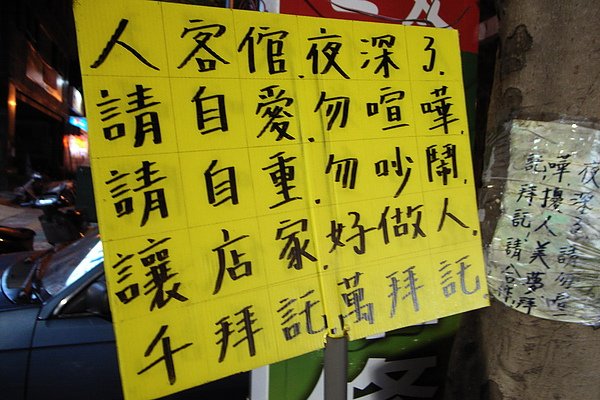 人客倌,夜深了.
請自愛,勿喧嘩.
請自重,勿吵鬧.
讓店家,好做人.
千拜託,萬拜託
夜深了請勿喧
嘩擾人美夢拜
託拜託請合作